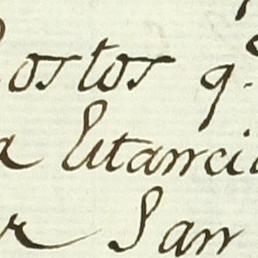 Costos q.
a Estancia
r San